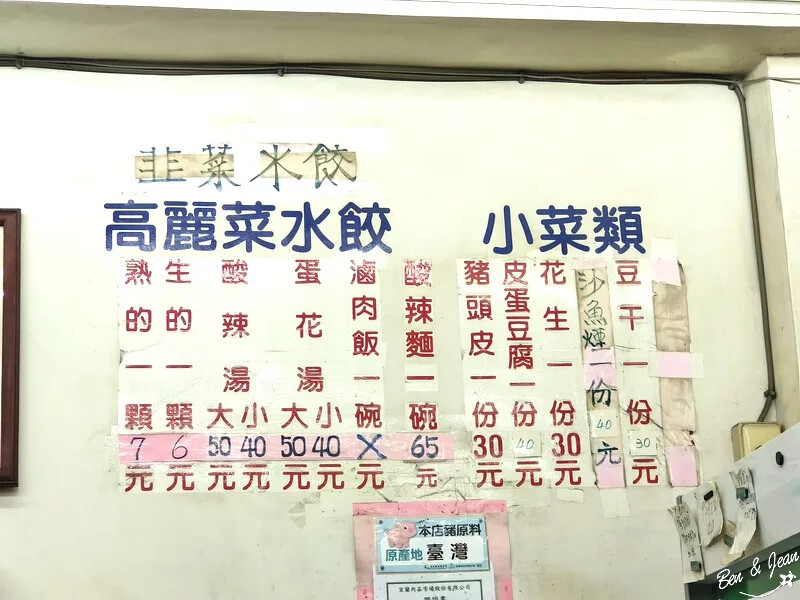 韭菜水餃
高麗菜水餃
小菜類
熟的一顆7元
生的一顆6元
酸辣湯大50元小40元
蛋花湯大50元小40元
滷肉飯一碗X元
酸辣麵一碗65元
豬頭皮一份30元
皮蛋豆腐一份40元
花生一份30元
沙魚煙一份40元
豆干一份30元
本店豬原料
原產地 臺灣
宜蘭肉品市場股份有限公司
Ben & Jean